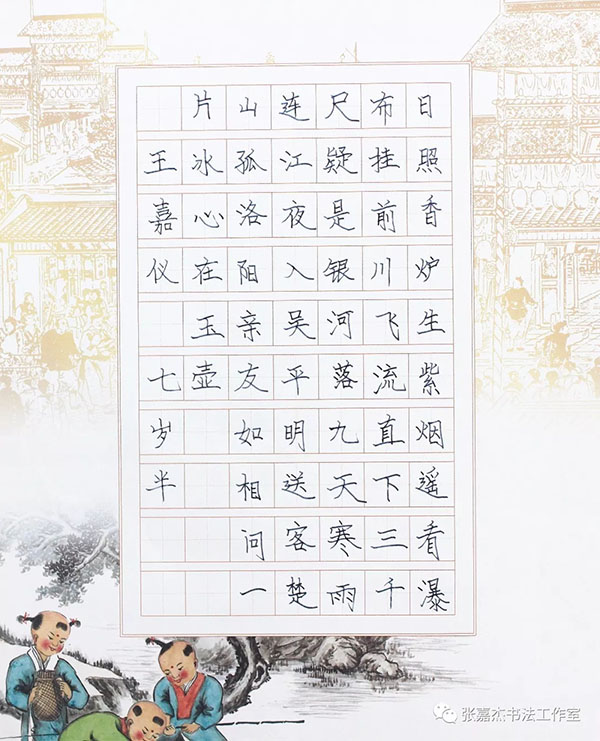 日照香炉生紫烟遥看瀑
布挂前川飞流直下三千
尺疑是银河落九天寒雨
连江夜入吴平明送客楚
山孤洛阳亲友如相问一
片冰心在玉壶
王嘉仪 七岁半
张嘉杰书法工作室